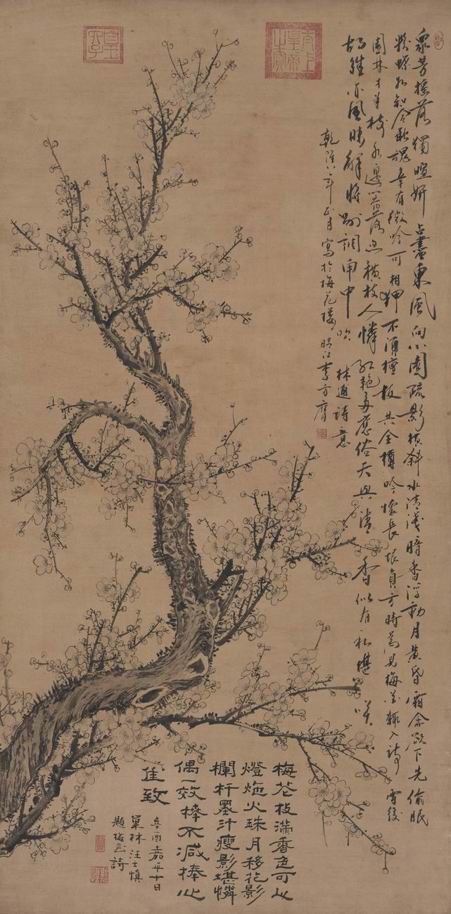 衆芳搖落獨暄妍占盡東風向小園疏影橫斜水清淺暗香浮動月黃昏霜禽欲下先偷眼
粉蝶如知合斷魂幸有微吟可相狎不須檀板共金樽吟懷長恨負芳時為見梅花輒入詩雪後
園林才半樹水邊籬落忽橫枝人憐紅艷多應俗天與清香似有私堪笑
胡雛亦風味解將聲調角中吹 林逋詩意
乾隆年月寫於梅花樓 晴江李方膺
梅花枝滿香色可以
燈炮火珠月移花影
欄杆墨汁瘦影堪憐
偶一效捧不減捧心
佳致
辛酉嘉平十日
巢林汪士慎
題